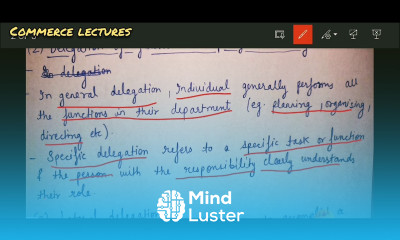 COMMERCE LECTURES
(2) Delegation of
- In general delegation, Individual generally performs all
the functions in their department (eg. planning, organising,
directing etc).
- Specific delegation refers to a specific task or function
& the person with the responsibility clearly understands
their role.
Mind
Luster